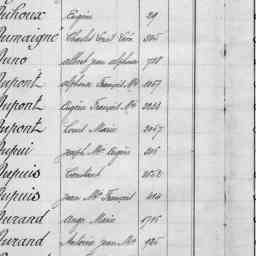 Duhoux Eugène 29
Dumaigné Charles Louis Léon
Duno Albert Jean Alphonse 718
Dupont Alphonse François Mie 1057
Dupont Eugène François Mie
Dupont Louis Marie 2067
Dupui Joseph Mie Eugène
Dupuis Constant 1052
Dupuis Jean Mie François 414
Durand Ange Marie 1715
Durand Antoine Jean Mie 925